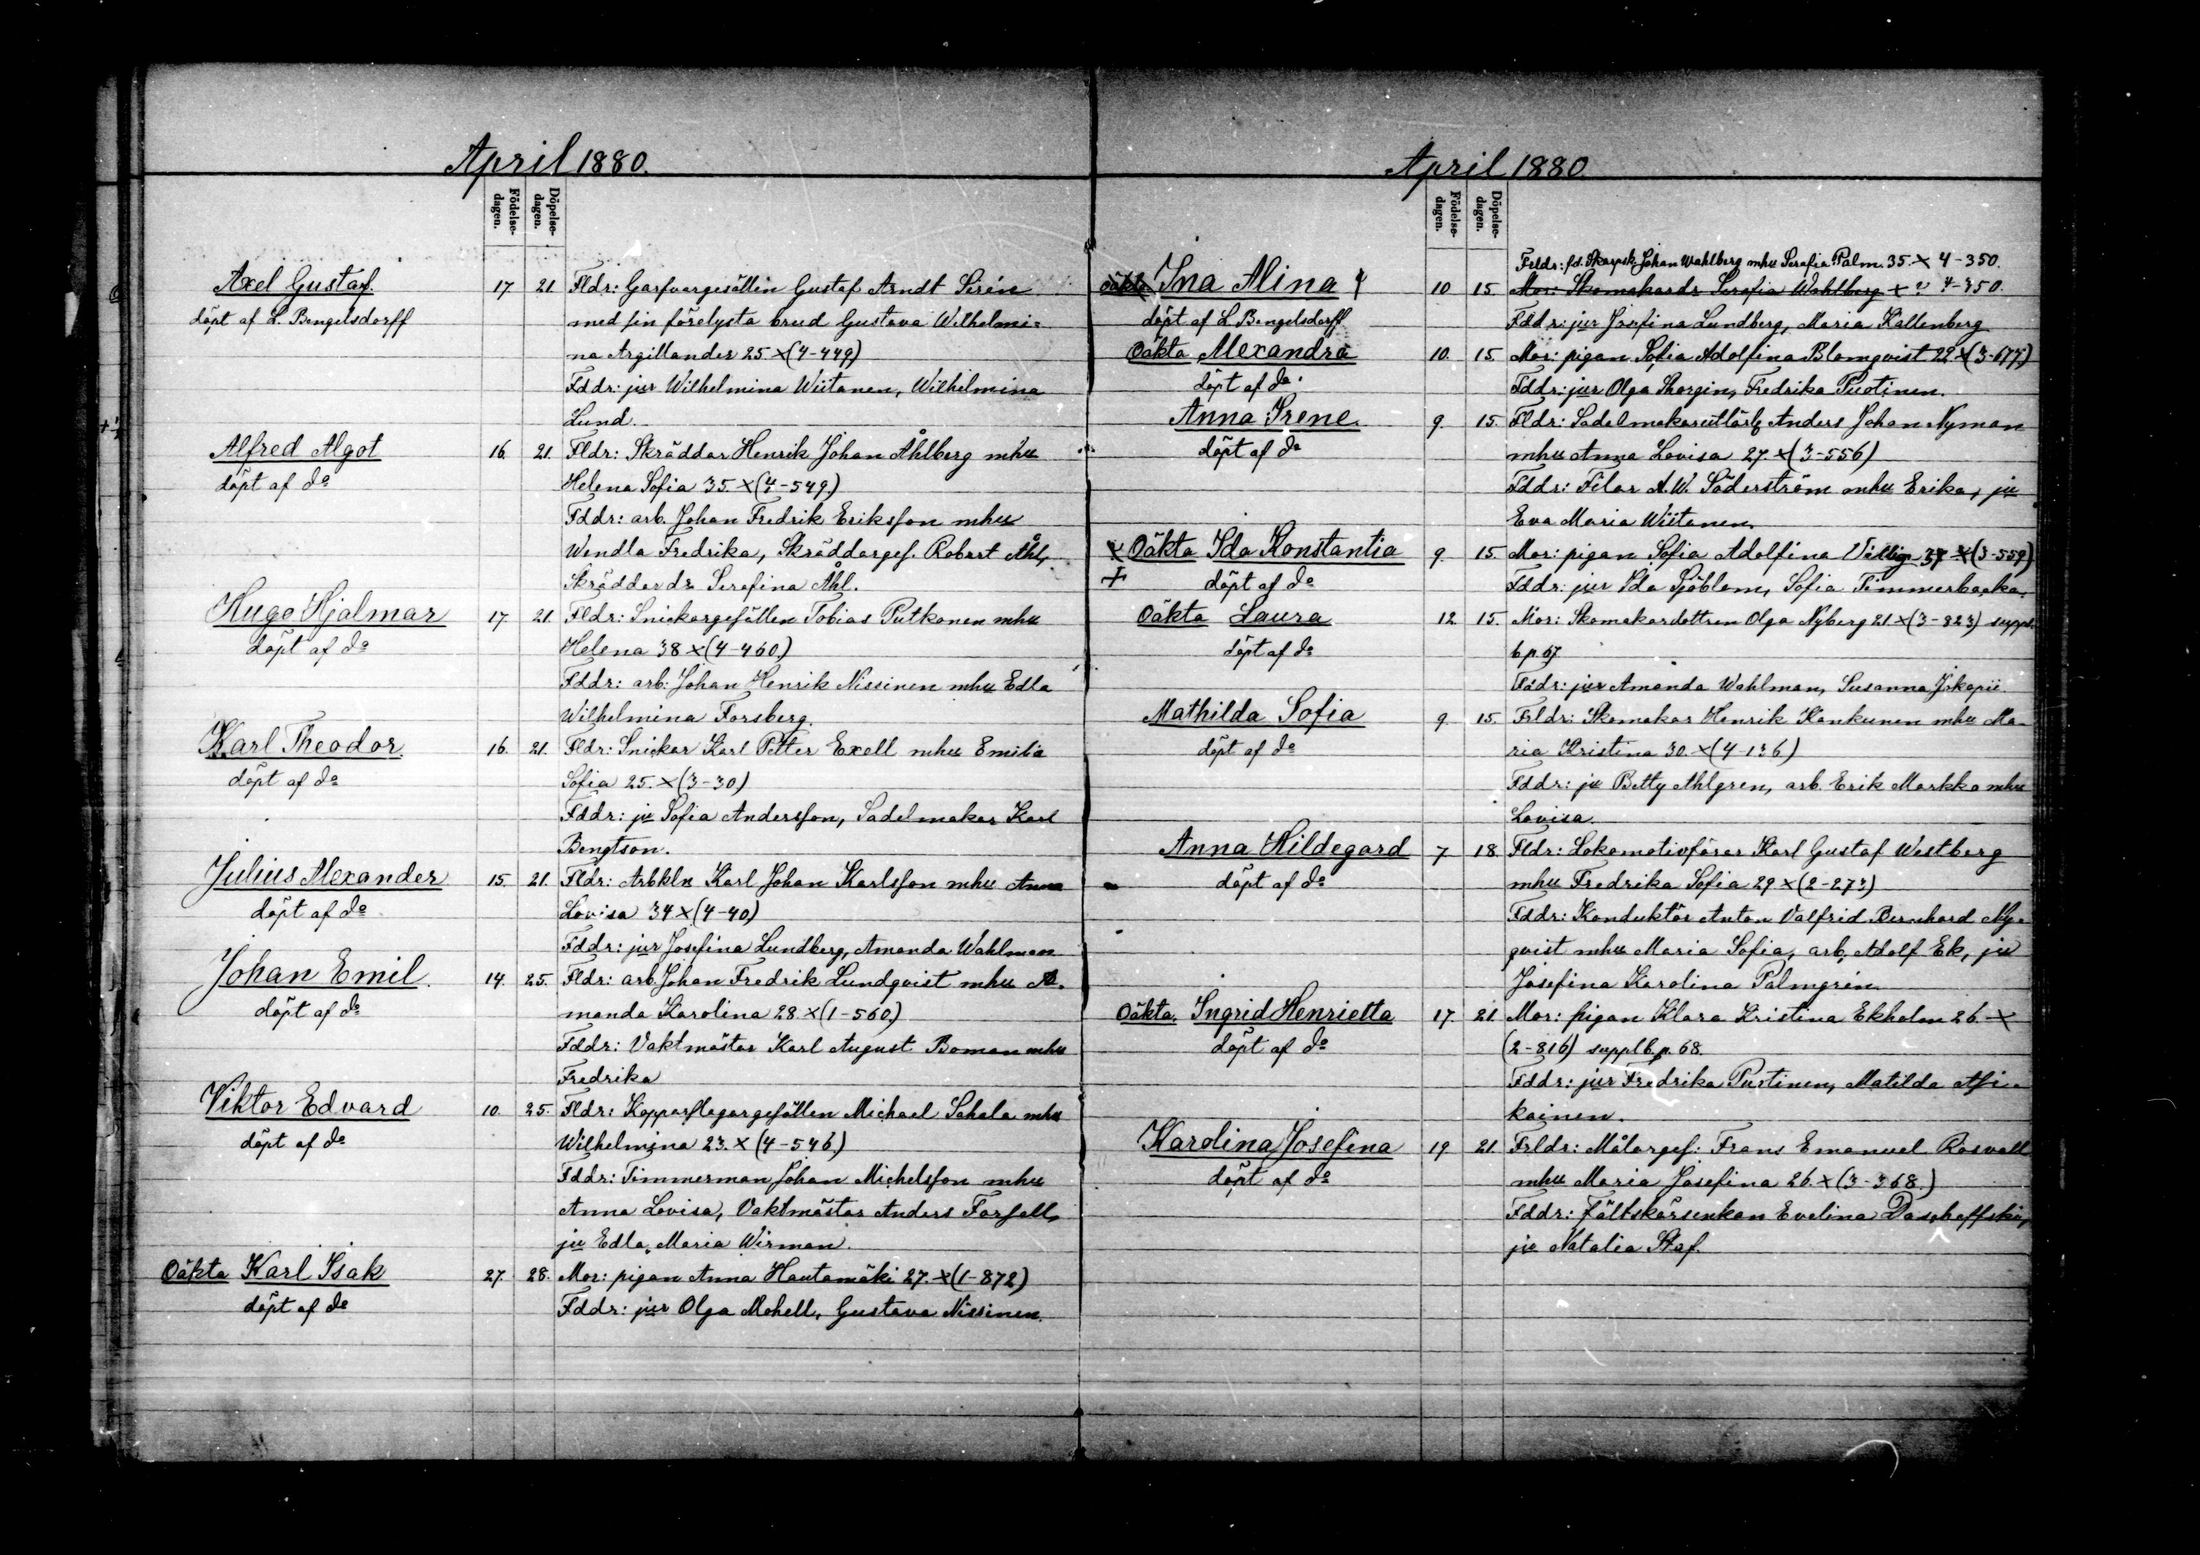 April 1880.
Födelse-dagen.
Döpelse-dagen.
Axel Gustaf. 17 21. Fldr: Garfvargesällen Gustaf Arndt Serén
döpt af L. Bengelsdorff med sin förelysta brud Gustava Wilhelmi-
na Argillander 25 × (4-449)
Fddr: jur Wilhelmina Wiitanen, Wilhelmina
Lund.
Alfred Algot 16 21. Fldr: Skräddar Henrik Johan Åhlberg mhu
döpt af do Helena Sofia 35. × (4-549.)
Fddr: arb. Johan Fredrik Eriksson mhu
Wendla Fredrika, Skräddarges. Robert Åhl,
Skräddardr Serafina Åhl.
Hugo Hjalmar 17. 21 Fldr: Snickargesällen Tobias Putkonen mhu
döpt af do Helena 38 × (4-460.)
Fddr: arb: Johan Henrik Nissinen mhu Edla
Wilhelmina Forsberg.
Karl Theodor. 16. 21. Fldr: Snickar Karl Petter Exell mhu Emilia
döpt af do Sofia 25. × (3-30)
Fddr: ju Sofia Andersson, Sadelmakar Karl
Bengtson.
Julius Alexander 15. 21. Fldr: Arbkln Karl Johan Karlsson mhu Anna
döpt af do Lovisa 34 × (4-40)
Fddr: jur Josefina Lundberg, Amanda Wahlman
Johan Emil. 14. 25. Fldr: arb. Johan Fredrik Lundqvist mhu A-
döpt af do manda Karolina 28. × (1-560.)
Fddr: Vaktmästar Karl August Boman mhu
Fredrika
Viktor Edvard 10. 25. Fldr: Kopparslagargesällen Michael Sahala mhu
döpt af do Wilhelmina 23. × (4-546.)
Fddr: Timmerman Johan Michelsson mhu
Anna Lovisa, Vaktmästar Anders Forsell,
ju Edla Maria Wirman.
Oäkta Karl Isak 27. 28. Mor: pigan Anna Hautamäki 27. × (1-872)
döpt af do Fddr: jur Olga Mohell, Gustava Nissinen.
April 1880
Födelse-dagen.
Döpelse-dagen.
Frldr: fd. Skarpsk Johan Wahlberg mhu Serafia Palm. 35. × 4-350.
Oäkta Ina Alina 10 15. Mor: Skomakardr Serafia Wahlberg × ? 4-350.
döpt af L Bengelsdorff Fddr: jur Josefina Lundberg, Maria Kallenberg
Oäkta Alexandra 10. 15. Mor: pigan Sofia Adolfina Blomqvist 22 × (3-677.)
döpt af do. Fddr: jur Olga Thorgin, Fredrika Puotinen.
Anna Irene. 9. 15. Fldr: Sadelmakareutlärl Anders Johan Nyman
döpt af do mhu Anna Lovisa 27. × (3-556)
Fddr: Filar A.W. Söderström mhu Erika, ju
Eva Maria Wiitanen.
× Oäkta Ida Konstantia 9. 15. Mor: pigan Sofia Adolfina 37 × (3-559)
+ döpt af do Fddr: jur Ida Sjöblom, Sofia Timmerbacka.
Oäkta Laura 12. 15. Mor: Skomakardottren Olga Nyberg 21. × (3-823) suppl.
döpt af do b.p. 67.
Fddr: jur Amanda Wahlman, Susanna
Mathilda Sofia 9. 15. Frldr: Skomakar Henrik Kankunen mhu Ma-
döpt af do ria Kristina 30. × (4-136)
Fddr: ju Betty Ahlgren, arb. Erik Markko mhu
Lovisa.
Anna Hildegard 7 18. Fldr: Lokomotivförer Karl Gustaf Westberg
döpt af do mhu Fredrika Sofia 29 × (2-273)
Fddr: Konduktör Anton Valfrid Bernhard Ny-
qvist mhu Maria Sofia, arb. Adolf Ek, ju
Josefina Karolina Palmgrén.
Oäkta. Ingrid Henrietta 17. 21. Mor: pigan Klara Kristina Ekholm 26. ×
döpt af do (2-816) suppl b.p. 68.
Fddr: jur Fredrika Pustinen, Matilda Asi-
kainen.
Karolina Josefina 19 21. Frldr: Målarges: Frans Emanuel Rosvall
döpt af do mhu Maria Josefina 26. × (3-368.)
Fddr: Fältskärsenkan Evelina
ju Natalia Staf.